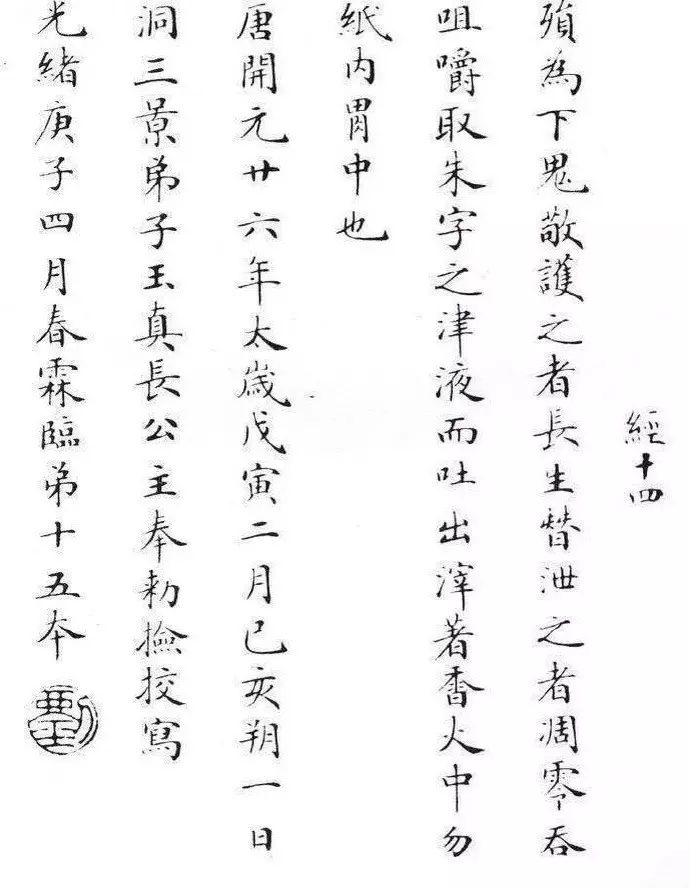 經十四
殞為下鬼敬護之者長生替泄之者凋零吞
咀嚼取朱字之津液而吐出滓著香火中勿
紙內胃中也
唐開元廿六年太歲戊寅二月己亥朔一日
洞三景弟子玉真長公主奉勅檢挍寫
光緒庚子四月春霖臨弟十五本